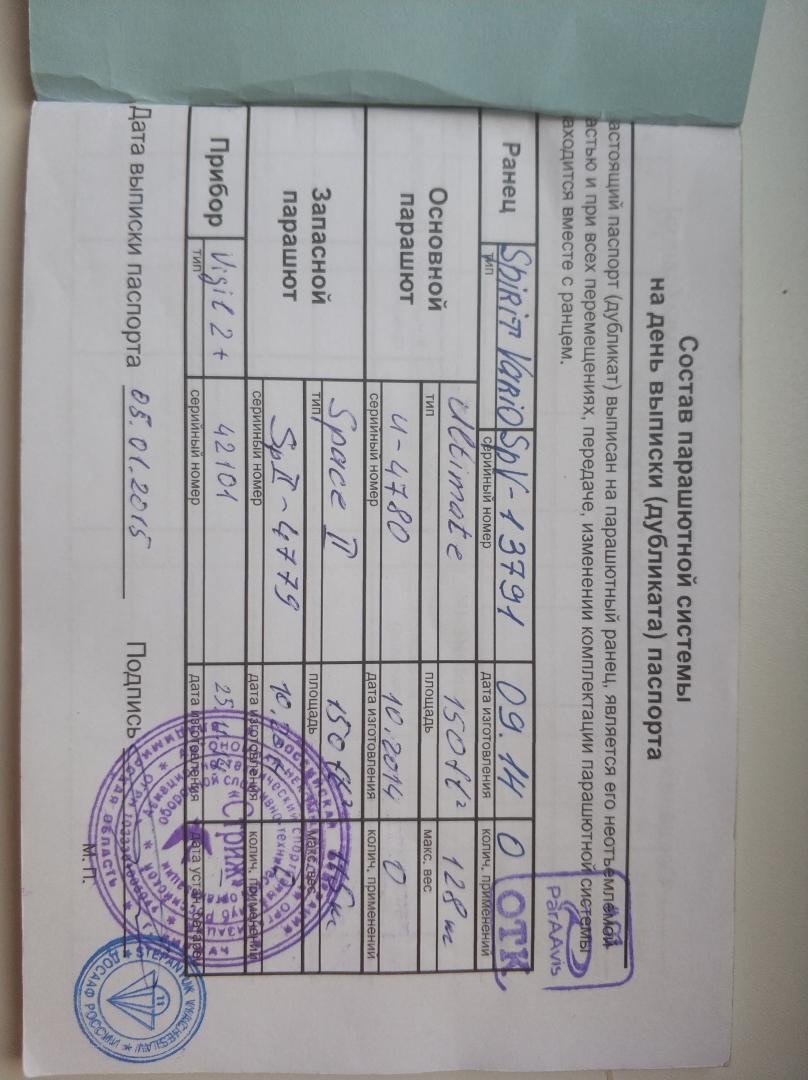 Состав парашютной системы
на день выписки (дубликата) паспорта
астоящий паспорт (дубликат) выписан на парашютный ранец, является его неотъемлемой
астью и при всех перемещениях, передаче, изменении комплектации парашютной системы
аходится вместе с ранцем.
ParAAvis
ОТК
Ранец Spirit Vario SpV-13791 09.14 0
тип серийный номер дата изготовления колич. применений
Основной парашют
Ultimate 150 ft² 128 кг
тип площадь макс. вес
U-4780 10.2014 0
серийный номер дата изготовления колич. применений
Запасной парашют
Space II 150 ft²
тип площадь макс. вес
Sp II-4779
серийный номер дата изготовления колич. применений
Прибор Vigil 2+ 42101
тип серийный номер дата изготовления
Дата выписки паспорта 05.01.2015 Подпись
М. П.
«Стриж»
ОБЛАСТЬ
STEPANIUK VYACHESLAV
ДОСААФ РОССИИ